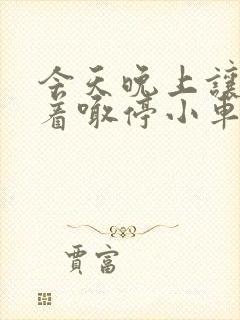 今天晚上讓
着噉停小車
賈富